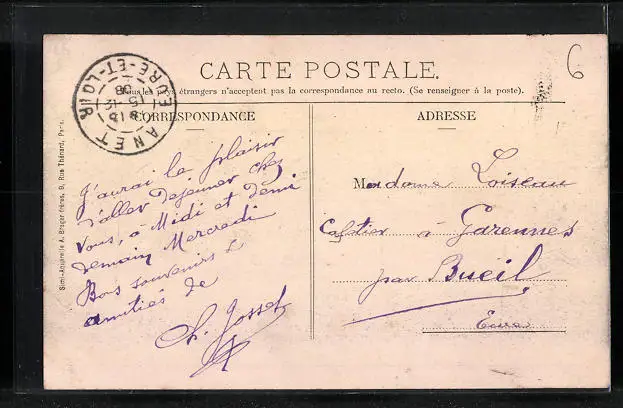 CARTE POSTALE.
Tous les pays étrangers n'acceptent pas la correspondance au recto. (Se renseigner à la poste).
CORRESPONDANCE
J'aurai le plaisir
d'aller déjeuner chez
vous, à Midi et demi
demain Mercredi
Bons souvenirs &
amitiés de
Ch. Josset
ADRESSE
Madame Loiseau
Cafetier à Garennes
par Bueil
Eure
6
ANET
EURE-ET-LOIR
15-12
08
Simi-Aquarelle A. Breger frères, 9, Rue Thénard, Paris.